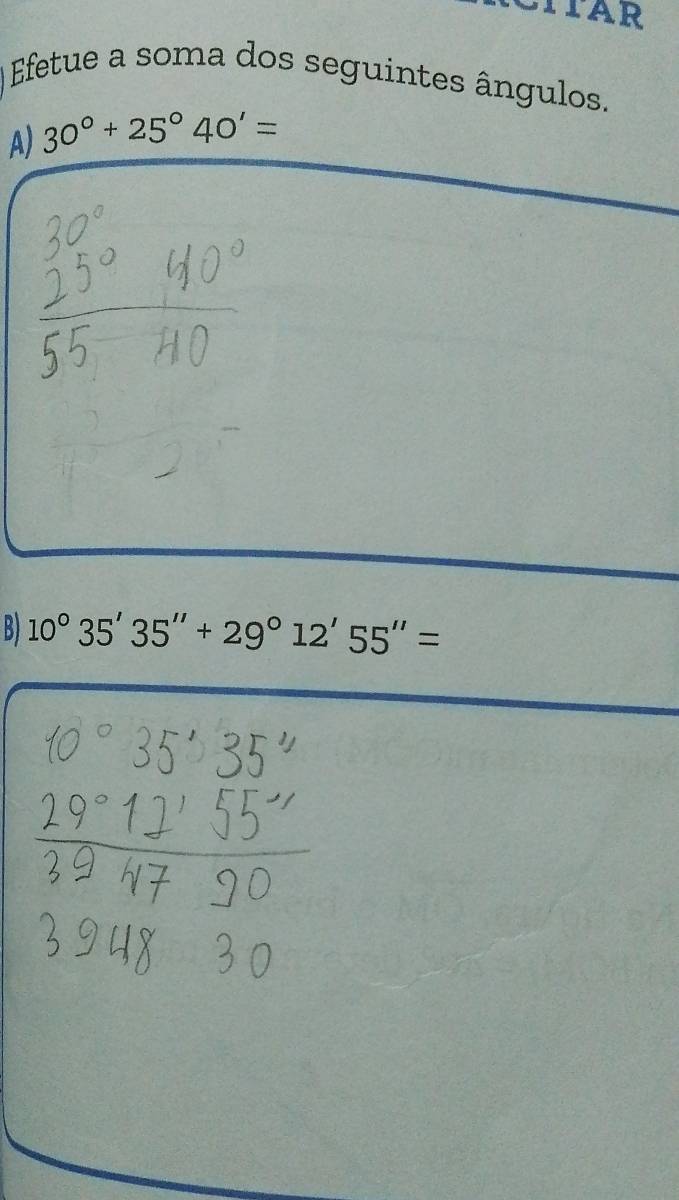 Efetue a soma dos seguintes ângulos.
A) 30° + 25° 40′ =
30°
25° 40°
55 40
B) 10° 35′ 35″ + 29° 12′ 55″ =
10° 35' 35"
29° 12' 55"
39 47 90
39 48 30